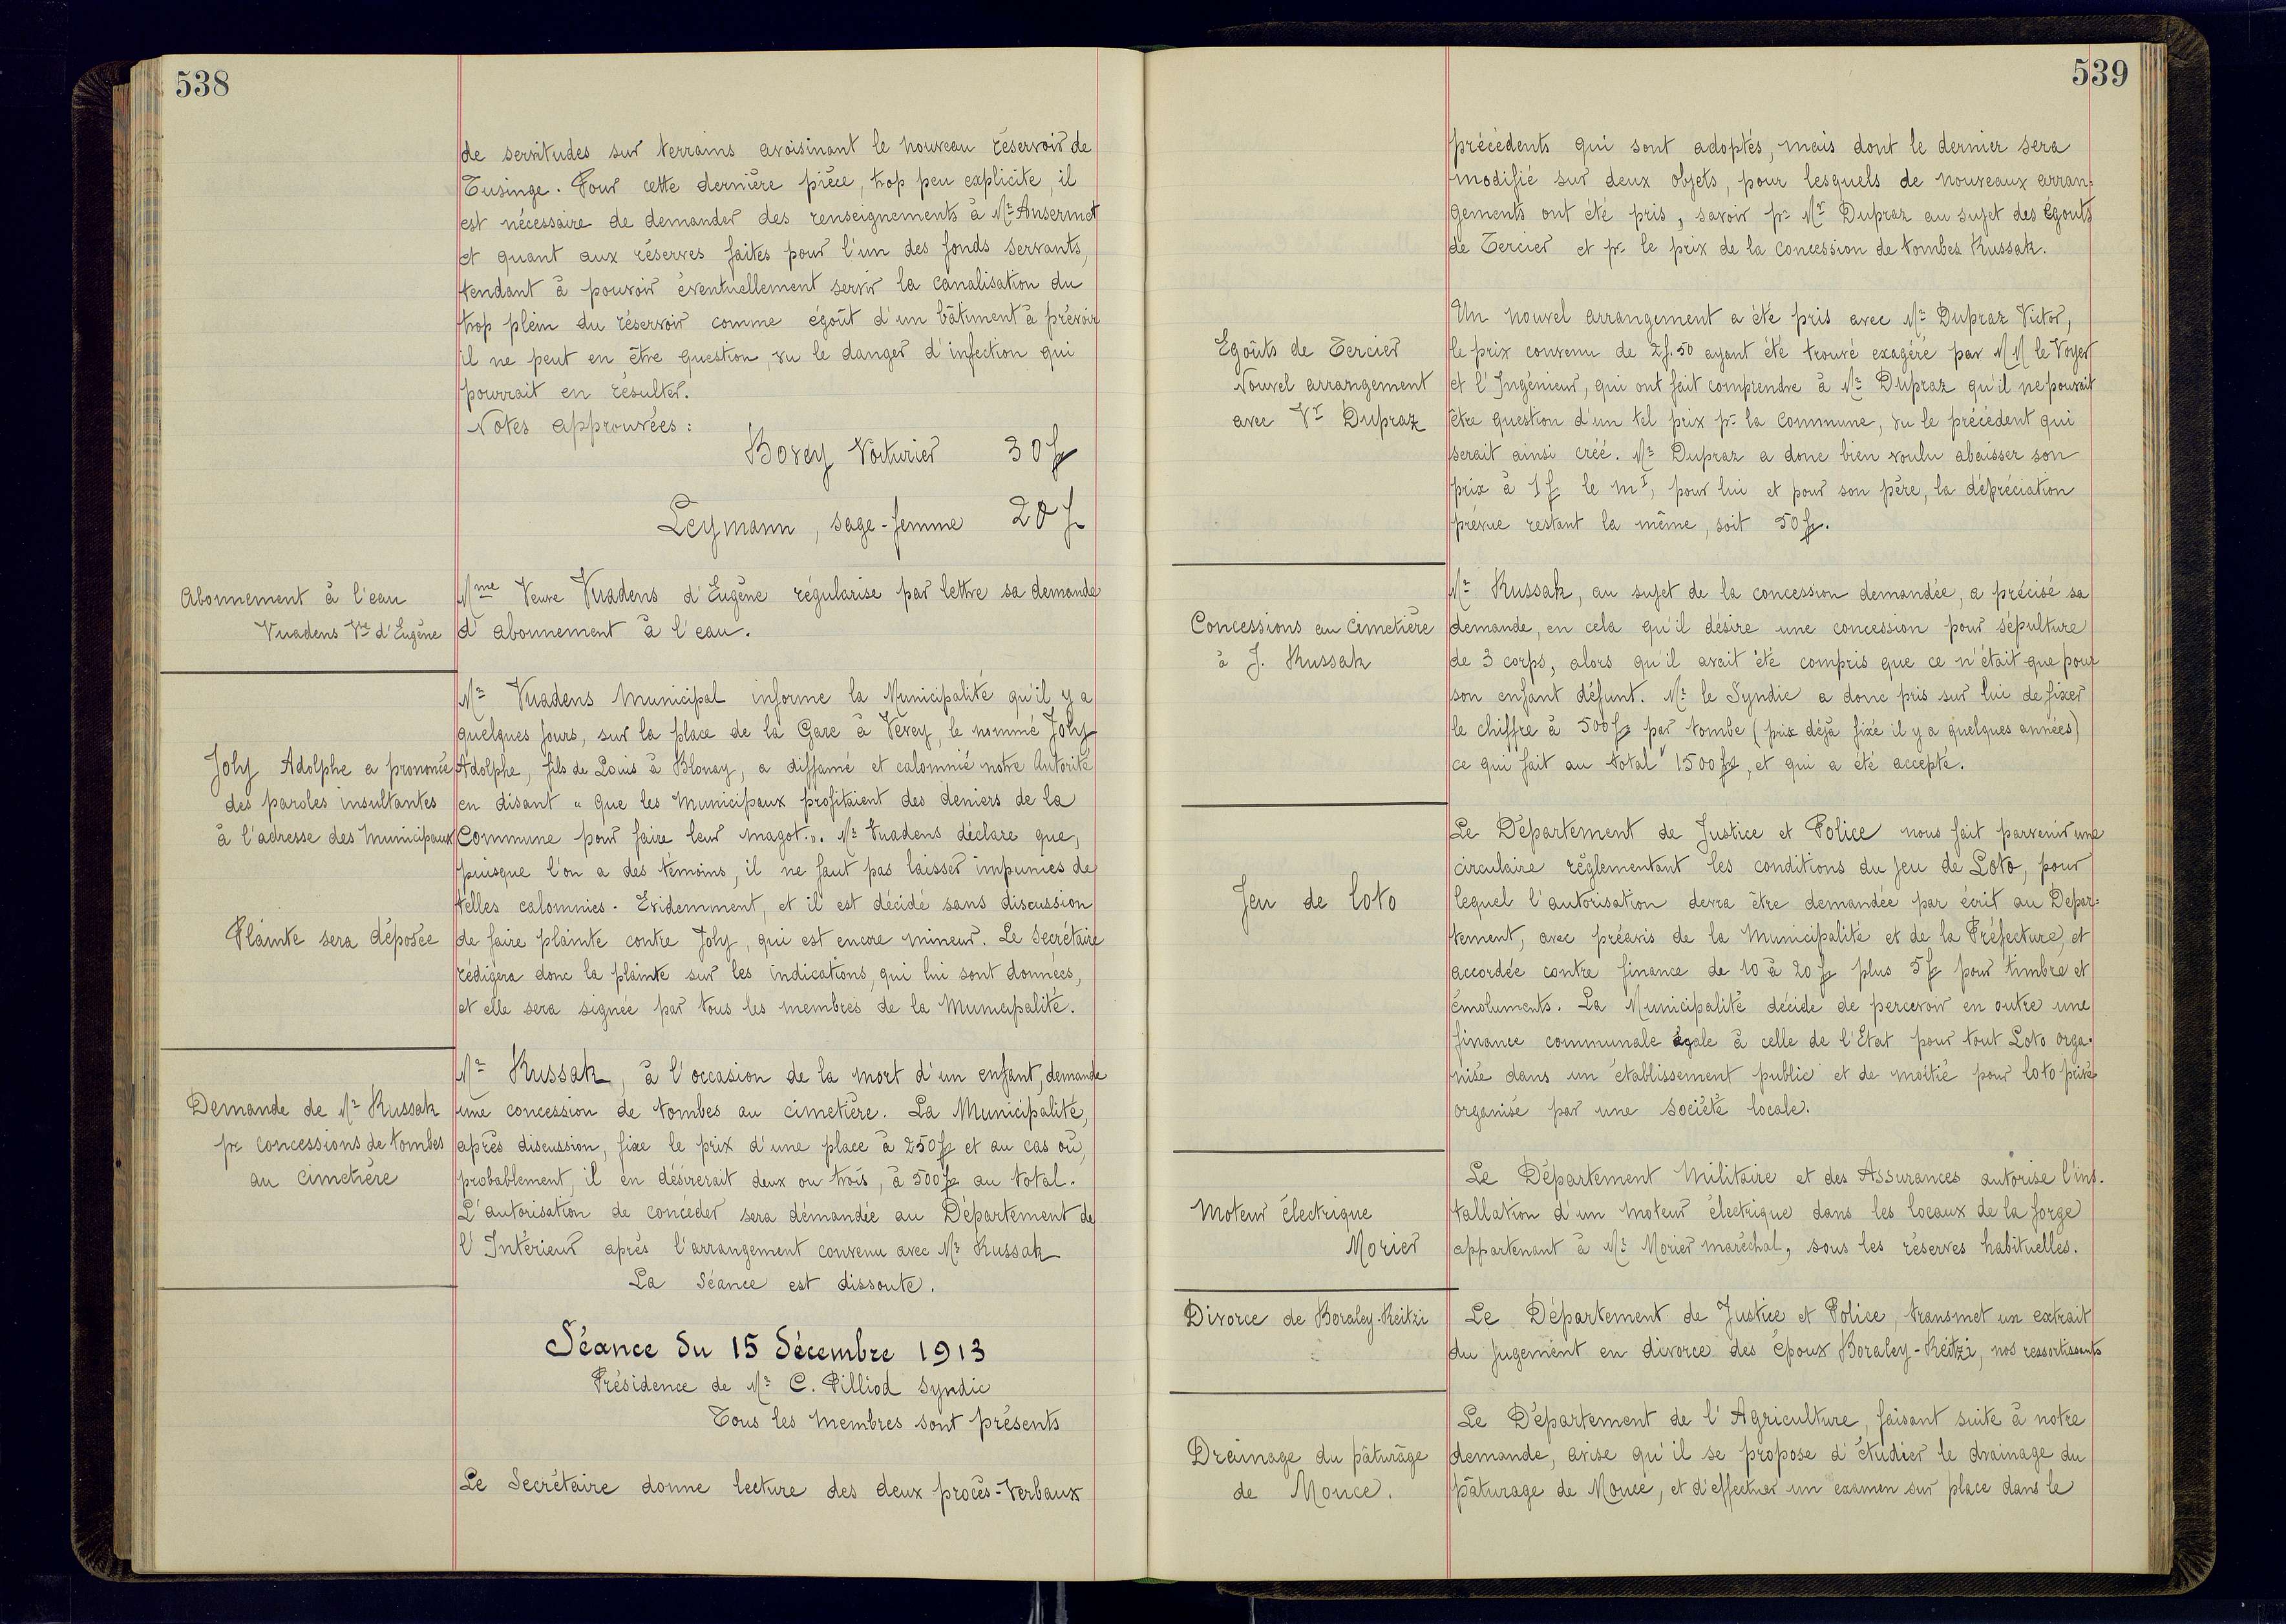 538
de servitudes sur terrains avoisinant le nouveau réservoir de
Tusinge. Pour cette dernière pièce, trop peu explicite, il
est nécessaire de demander des renseignements à Mr Ansermet
et quant aux réserves faites pour l'un des fonds servants,
tendant à pouvoir éventuellement servir la canalisation du
trop plein du réservoir comme égoût d'un bâtiment à prévoir
il ne peut en être question, vu le danger d'infection qui
pourrait en résulter.
Notes approuvées:
Bovey Voiturier 30 f
Leymann, sage-femme 20 f
Abonnement à l'eau
Vuadens Vve d'Eugène
Mme Veuve Vuadens d'Eugène régularise par lettre sa demande
d'abonnement à l'eau.
Joly Adolphe a prononcé
des paroles insultantes
à l'adresse des Municipaux
Plainte sera déposée
Mr Vuadens Municipal informe la Municipalité qu'il y a
quelques jours, sur la place de la Gare à Vevey, le nommé Joly
Adolphe, fils de Louis à Blonay, a diffamé et calomnié notre Autorité
en disant „ que les Municipaux profitaient des deniers de la
Commune pour faire leur magot.„ Mr Vuadens déclare que,
puisque l'on a des témoins, il ne faut pas laisser impunies de
telles calomnies. Evidemment, et il est décidé sans discussion
de faire plainte contre Joly, qui est encore mineur. Le Secrétaire
rédigera donc la plainte sur les indications, qui lui sont données,
et elle sera signée par tous les membres de la Municipalité.
Demande de Mr Kussak
pr concessions de tombes
au cimetière
Mr Kussak, à l'occasion de la mort d'un enfant, demande
une concession de tombes au cimetière. La Municipalité,
après discussion, fixe le prix d'une place à 250 f et au cas où,
probablement, il en désirerait deux ou trois, à 500 f au total.
L'autorisation de concéder sera démandée au Département de
l'Intérieur après l'arrangement convenu avec Mr Kussak
La Séance est dissoute.
Séance du 15 décembre 1913
Présidence de Mr C. Pilliod Syndic
Tous les membres sont présents
Le Secrétaire donne lecture des deux procès-verbaux
539
précédents qui sont adoptés, mais dont le dernier sera
modifié sur deux objets, pour lesquels de nouveaux arran=
gements ont été pris, savoir pr Mr Dupraz au sujet des égouts
de Tercier et pr le prix de la concession de tombes Kussak.
Egoûts de Tercier
Nouvel arrangement
avec Vr Dupraz
Un nouvel arrangement a été pris avec Mr Dupraz Victor,
le prix convenu de 2f.50 ayant été trouvé exagéré par MM le Voyer
et l'Ingénieur, qui ont fait comprendre à Mr Dupraz qu'il ne pouvait
être question d'un tel prix pr la Commune, vu le précédent qui
serait ainsi créé. Mr Dupraz a donc bien voulu abaisser son
prix à 1 f le ml, pour lui et pour son père, la dépréciation
prévue restant la même, soit 50 f.
Concessions au cimetière
à J. Kussak
Mr Kussak, au sujet de la concession demandée, a précisé sa
demande, en cela qu'il désire une concession pour sépulture
de 3 corps, alors qu'il avait été compris que ce n'était que pour
son enfant défunt. Mr le Syndic a donc pris sur lui de fixer
le chiffre à 500 f par tombe (prix déjà fixé il y a quelques années)
ce qui fait au total 1500 f, et qui a été accepté.
Jeu de loto
Le Département de Justice et Police nous fait parvenir une
circulaire règlementant les conditions du jeu de Loto, pour
lequel l'autorisation devra être demandée par écrit au Depar=
tement, avec préavis de la Municipalité et de la Préfecture, et
accordée contre finance de 10 à 20 f plus 5 f pour timbre et
émoluments. La Municipalité décide de percevoir en outre une
finance communale égale à celle de l'Etat pour tout Loto orga-
nisé dans un établissement public et de moitié pour loto privé
organisé par une société locale.
Moteur électrique
Morier
Le Département Militaire et des Assurances autorise l'ins-
tallation d'un moteur électrique dans les locaux de la forge
appartenant à Mr Morier maréchal, sous les réserves habituelles.
Divorce de Boraley-Reitzi
Le Département de Justice et Police, transmet un extrait
du jugement en divorce des époux Boraley-Reitzi, nos ressortissants
Drainage du pâturâge
de Mouce.
Le Département de l'Agriculture, faisant suite à notre
demande, avise qu'il se propose d'étudier le drainage du
pâturage de Mouce, et d'effectuer un examen sur place dans le